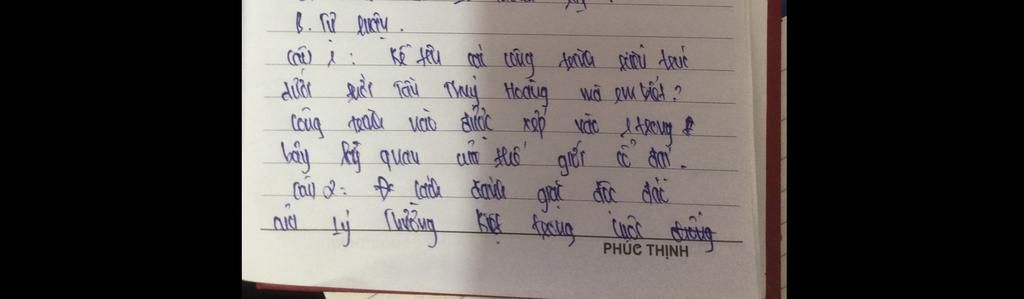 B. Tự luận.
Câu 1: Kể tên các công trình kiến trúc
dưới thời Tần Thuỷ Hoàng mà em biết?
Công trình nào được xếp vào 1 trong
bảy kỳ quan của thế giới cổ đại.
Câu 2: Cách đánh giặc độc đáo
của Lý Thường Kiệt trong cuộc
PHÚC THỊNH